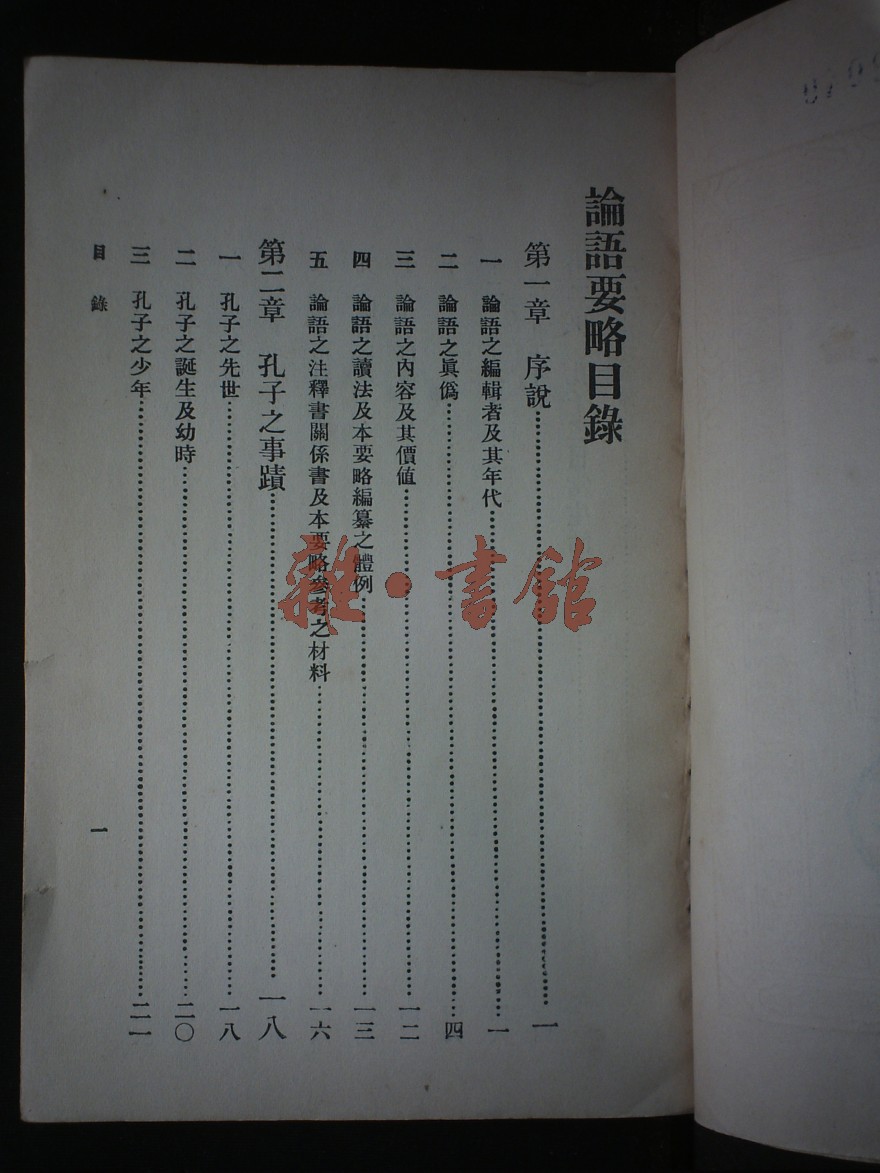 論語要略目錄
第一章 序說……一
一 論語之編輯者及其年代……一
二 論語之眞僞……四
三 論語之內容及其價值……一二
四 論語之讀法及本要略編纂之體例……一三
五 論語之注釋書關係書及本要略參考之材料……一六
第二章 孔子之事蹟……一八
一 孔子之先世……一八
二 孔子之誕生及幼時……二〇
三 孔子之少年……二一
目錄 一
雜·書館